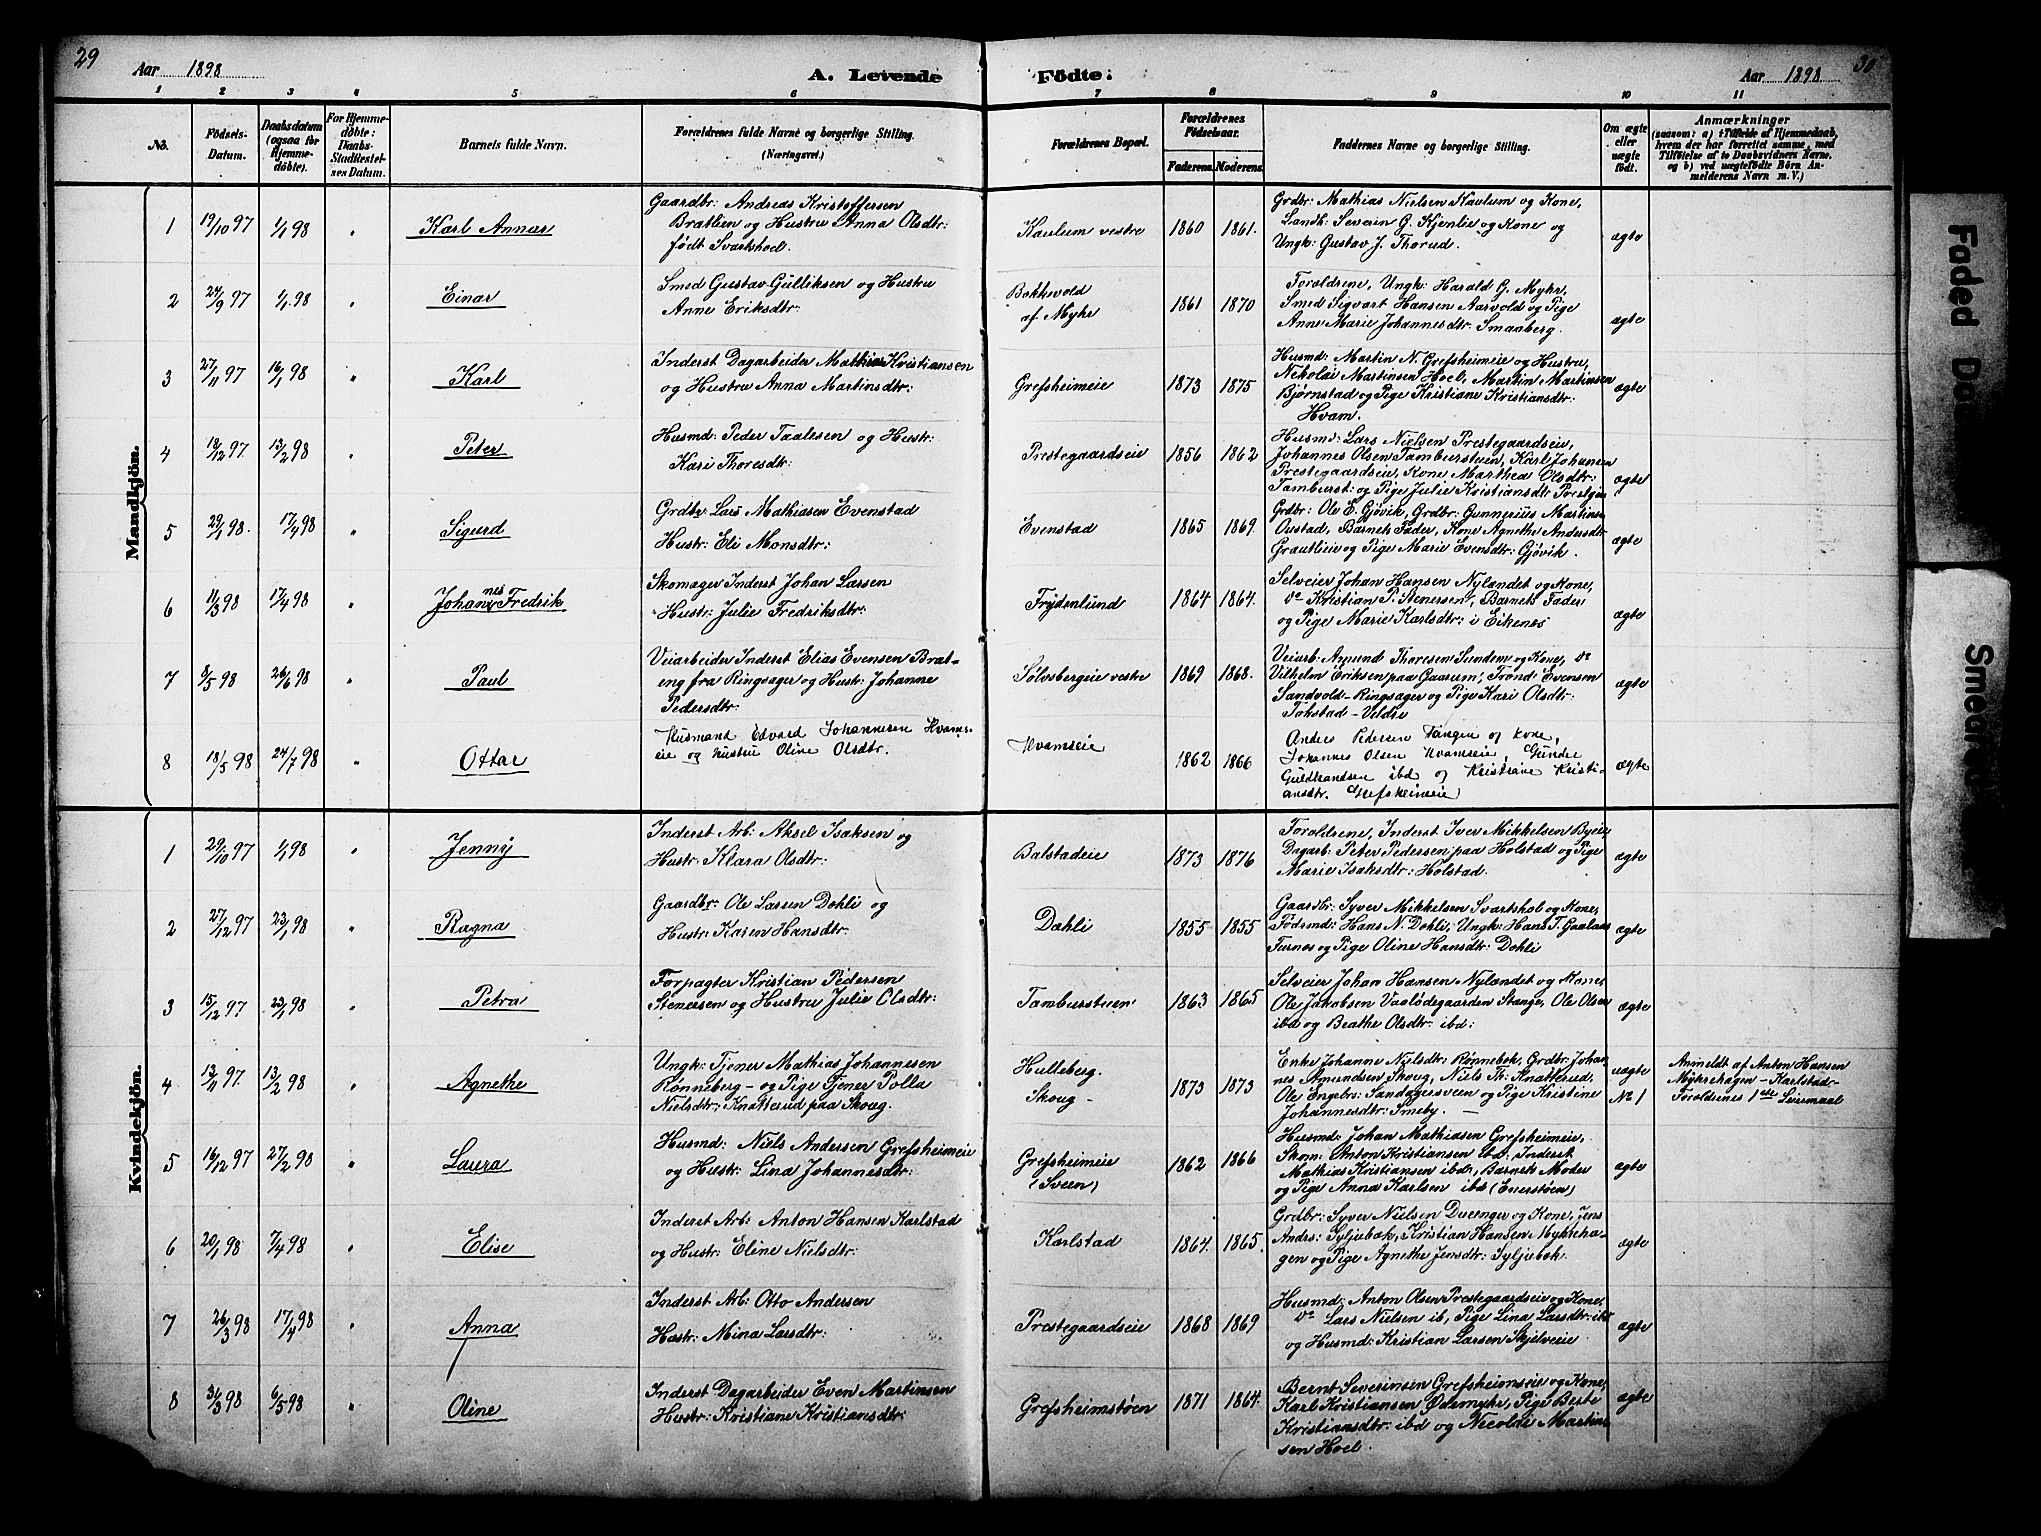 29
30
Aar 1898
A. Levende
Födte.
Aar 1898
1 2 3 4 5 6 7 8 9 10 11
No.
Födsels-
Datum.
Daabsdatum
(ogsaa for
Hjemme-
döbte).
For Hjemme-
döbte:
Daabs-
Stadfæstel-
ses Datum.
Barnets fulde Navn.
Forældrenes fulde Navne og borgerlige Stilling.
(Næringsvei.)
Forældrenes Bopæl.
Forældrenes
Födselsaar.
Faderens. Moderens.
Faddernes Navne og borgerlige Stilling.
Om ægte
eller
uægte
födt.
Anmærkninger
(saasom: a) i Tilfælde af Hjemmedaab,
hvem der har forrettet samme, med
Tilföielse af to Daabsvidners Navne.
og b) ved uægtefödte Börn An-
melderens Navn m. V.)
Mandkjön.
1 19/10 97 1/1 98 " Karl Annar
Gaardbr: Andreas Kristoffersen
Bratlien og Hustru Anna Olsdtr:
født Svartshoel.
Kaulum vestre 1860 1861.
Grdbr: Mathias Nielsen Kaulum og Kone,
Landh: Severin G. Kjenlie og Kone og
Ungk: Gustav J. Thorud.
ægte
2 24/9 97 1/1 98 " Einar
Smed Gustav Gulliksen og Hustru
Anne Eriksdtr:
Bakkvold
af Myhr 1861 1870
Foroldrene, Ungk: Harald G. Myhr,
Smed Sigvart Hansen Aarvold og Pige
Anne Marie Johannesdtr: Smaaberg.
ægte
3 27/11 97 16/1 98 " Karl
Inderst Dagarbeider Mathias Kristiansen
og Hustru Anna Martinsdtr:
Grefsheimeie 1873 1875
Husmd: Martin N. Grefsheimeie og Hustru,
Nekolai Martinsen Hoel, Martin Martinsen
Bjørnstad og Pige Kristiane Kristiansdtr:
Hvam.
ægte
4 12/12 97 13/2 98 " Peter
Husmd: Peder Taalesen og Hustr:
Kari Thoresdtr:
Prestegaardseie 1856 1862
Husmd: Lars Nielsen Prestegaardseie,
Johannes Olsen Tamburstuen, Karl Johansen
Prestegaardseie, Kone Marthea Olsdtr:
Tamburst: og Pige Julie Kristiansdtr Prestgeie
ægte
5 29/1 98. 17/4 98 " Sigurd
Grdbr: Lars Mathiasen Evenstad
Hustr: Eli Monsdtr:
Evenstad 1865 1869.
Grdbr: Ole E. Gjøvik, Grdbr: Gunnerius Martinsen
Oustad, Barnets Fader, Kone Agnethe Andersdtr
Grautlieie og Pige Marie Evensdtr: Gjøvik.
ægte
6 11/3 98 17/4 98 " Johannes Fredrik
Skomager Inderst Johan Larsen
Hustr: Julie Fredriksdtr:
Frydenlund 1864 1864.
Selveier Johan Hansen Nylandet og Kone,
do Kristian P. Stenersen, Barnets Fader
og Pige Marie Karlsdtr: i Eikenæs
ægte
7 8/5 98 26/6 98 " Paul
Veiarbeider Inderst Elias Evensen Brat-
eng fra Ringsager og Hustr: Johanne
Pedersdtr:
Sølvsbergeie vestre 1869 1868.
Veiarb: Amund Thoresen Sundem og Kone, do
Vilhelm Eriksen paa Gaarum, Trond Evensen
Sandvold - Ringsager og Pige Kari Olsdtr:
Tokstad - Veldre
ægte
8 18/5 98 24/7 98 " Ottar
Husmand Edvard Johannesen Hvams-
eie og Hustru Oline Olsdtr.
Hvamseie 1862 1866
Anders Pedersen Tangen og Kone,
Johannes Olsen Hvamseie, Gunder
Guldbrandsen ibd og Kristiane Kristi-
ansdtr. Grefsheimeie
ægte
Kvindekjön.
1 29/10 97 1/1 98 " Jenny
Inderst Arb: Aksel Isaksen og
Hustr: Klara Olsdtr:
Balstadeie 1873 1876
Foroldrene, Inderst Iver Mikkelsen Byeie,
Dagarb: Peter Pedersen paa Holstad og Pige
Marie Isaksdtr: Holstad.
ægte
2 27/12 97 23/1 98 " Ragna
Gaardbr: Ole Larsen Dohli og
Hustr: Karen Hansdtr:
Dahli 1855 1855
Gaardbr: Syver Mikkelsen Svartshol og Kone,
Fødsmd: Hans N. Dohli, Ungk: Hans T. Gaalaas
Furnes og Pige Oline Hansdtr: Dohli
ægte
3 15/12 97 23/1 98 " Petra
Forpagter Kristian Pedersen
Stenersen og Hustru Julie Olsdtr:
Tamburstuen 1863 1865
Selveier Johan Hansen Nylandet og Kone,
Ole Jakobsen Vaalødegaarden Stange, Ole Olsen
ibd og Beathe Olsdtr: ibd:
ægte
4 13/11 97. 13/2 98 " Agnethe
Ungk: Tjener Mathias Johannesen
Rønneberg - og Pige Tjener Polla
Nielsdtr: Knatterud paa Skoug.
Hulleberg.
Skoug - 1873 1873
Enke Johanne Nielsdtr: Rønnebek, Grdbr: Johan-
nes Amundsen Skoug, Niels Th: Knatterud,
Ole Engebr: Sandagersveen og Pige Kristine
Johannesdtr: Smeby. -
uægte
No 1
Anmeldt af Anton Hansen
Myhrehagen - Karlstad-
Foroldrenes 1ste Leiermaal
5 16/12 97 27/2 98 " Laura
Husmd: Niels Andersen Grefsheimeie
og Hustr: Lina Johannesdtr:
Grefsheimeie
(Sveen) 1862 1866
Husmd: Johan Mathiasen Grefsheimeie,
Skom: Anton Kristiansen ibd: Inderst
Mathias Kristiansen ibd:, Barnets Moder
og Pige Anna Karlsen ibd (Enerstøen)
ægte
6 20/1 98 7/4 98 " Elise
Inderst Arb: Anton Hansen Karlstad
og Hustr: Eline Nielsdtr:
Karlstad 1864. 1865.
Grdbr: Syver Nielsen Ducenger og Kone, Jens
Andrs: Syljubæk, Kristian Hansen Myhreha-
gen og Pige Agnethe Jensdtr: Syljubæk.
ægte
7 26/3 98 17/4 98 " Anna
Inderst Arb: Otto Andersen
Hustr: Mina Larsdtr:
Prestegaardseie 1868 1869
Husmd: Anton Olsen Prestegaardseie og Kone,
do Lars Nielsen ib, Pige Lina Larsdtr: ibd
og Husmd: Kristian Larsen Skjelveie
ægte
8 31/3 98 6/5 98 " Oline
Inderst Dagarbeider Even Martinsen
Hustr: Kristiane Kristiansdtr:
Grefsheimstøen 1871 1864.
Bernt Severinsen Grefsheimseie og Kone,
Karl Kristiansen Ødemyhr, Pige Beste
Kristiansdtr: ibd og Necolai Martin
sen Hoel.
ægte
Faded